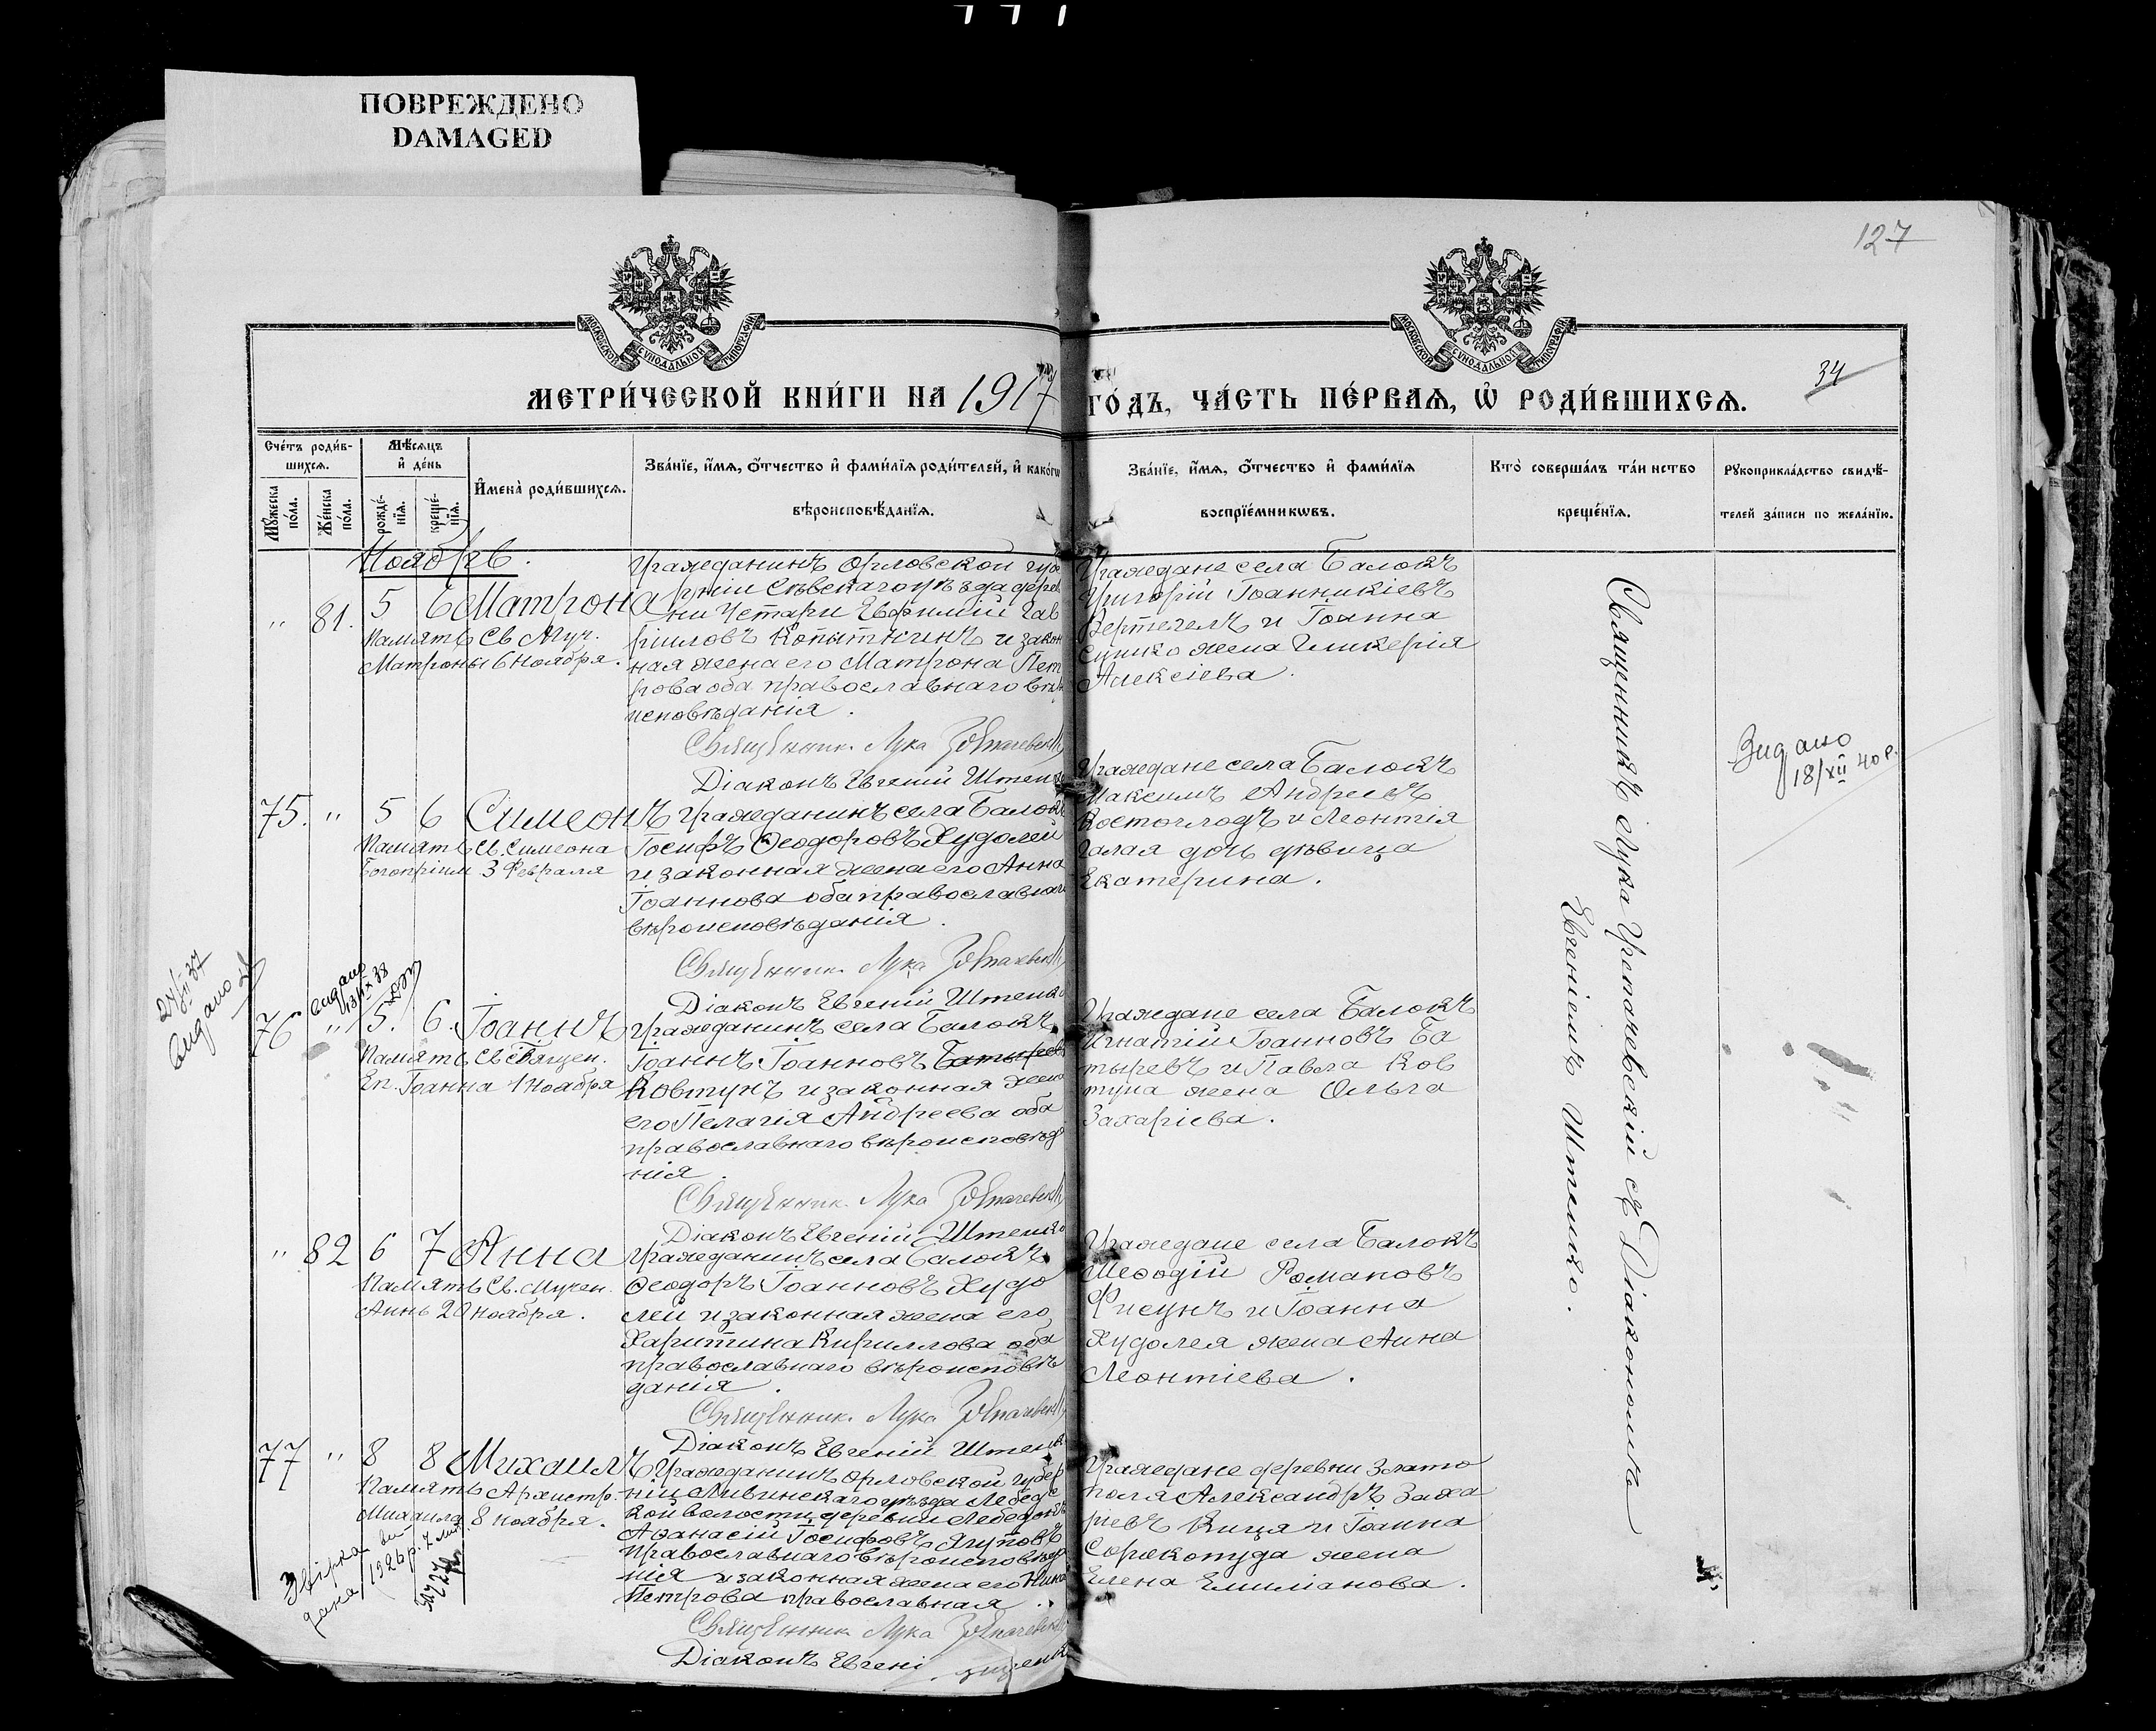 ПОВРЕЖДЕНО
DAMAGED
127
МОСКОВСКОЙ СѴНОДАЛЬНОЙ ТИПОГРАФІИ
МОСКОВСКОЙ СѴНОДАЛЬНОЙ ТИПОГРАФІИ
34
МЕТРИ́ЧЕСКОЙ КНИ́ГИ НА 1917 ГО́ДЪ, ЧА́СТЬ ПЕ́РВАѦ, Ѡ҆ РОДИ́ВШИХСѦ.
Сче́тъ роди́в-
шихсѧ.
Мꙋ́жеска по́ла.
Же́нска по́ла.
Мѣ́сѧцъ
и҆ де́нь
рожде́-
нїѧ.
креще́-
нїѧ.
И҆мена̀ роди́вшихсѧ.
Зва́нїе, и҆́мѧ, ѻ҆́тчество и҆ фами́лїѧ роди́телей, и҆ како́гѡ
вѣроисповѣ́данїѧ.
Зва́нїе, и҆́мѧ, ѻ҆́тчество и҆ фами́лїѧ
воспрїе́мникѡвъ.
Кто̀ соверша́лъ та́инство
креще́нїѧ.
Рꙋкоприкла́дство свидѣ́-
телей за́писи по жела́нїю.
Ноябрь.
" 81. 5 6 Матрона
Память Св Муч.
Матроны 6 Ноября.
Гражданинъ Орловской губе
рніи Сѣвскаго уѣзда дерев
ни Чемари Евфимій Гав
риловъ Копыткинъ и закон
ная жена его Матрона Пет
рова оба православнаго вѣро
исповѣданія.
Священник Лука
Діаконъ Евгеній Штепко
Граждане села Балокъ
Григорій Іоанникіевъ
Вертегелъ и Іоанна
жена Гликерія
Алексіева.
75. " 5 6 Симеонъ
Память Св. Симеона
Богопріим 3 Февраля
Гражданинъ села Балокъ
Іосифъ Ѳеодоровъ Худолей
и законная жена его Анна
Іоаннова оба православнаго
вѣроисповѣданія.
Священник Лука
Діаконъ Евгеній Штепко
Граждане села Балокъ
Максимъ Андреевъ
Костоглодъ и Леонтія
Галая дочь дѣвица
Екатерина.
Видано
18/XII 40 р.
Видано
76 " 5. 6. Іоаннъ
Память Св Священ.
Еп. Іоанна 1 Ноября
Гражданинъ села Балокъ
Іоаннъ Іоанновъ Батыревъ
Ковтунъ и законная жена
его Пелагія Андреева оба
православнаго вѣроисповѣда
нія.
Священник Лука
Діаконъ Евгеній Штепко
Граждане села Балокъ
Игнатій Іоанновъ Ба
тыревъ и Павла Ков
туна жена Ольга
Захаріева.
" 82 6 7 Анна
Память Св. Мучен.
Анны 20 Ноября.
Гражданинъ села Балокъ
Ѳеодоръ Іоанновъ Худо
лей и законная жена его
Харитина Кириллова оба
православнаго вѣроисповѣ
данія.
Священник Лука
Діаконъ Евгеній Штепко
Граждане села Балокъ
Меѳодій Романовъ
Фисунъ и Іоанна
Худолея жена Анна
Леонтіева.
77 " 8 8 Михаилъ
Память Архистр.
Михаила 8 Ноября.
Гражданинъ Орловской губер
ніи Ливинскаго уѣзда Лебедс
кой волости деревни Лебедокъ
Аѳанасій Іосифовъ Ягуповъ
Православнаго вѣроисповѣда
нія и законная жена его Нина
Петрова православная.
Священник Лука
Діаконъ Евгені
Граждане деревни Злато
поля Александръ Заха
ріевъ Киця и Іоанна
Сорокопуда жена
Елена Емиліанова.
Священникъ Лука Грепачевскій съ Діакономъ
Евгеніемъ Штепко.